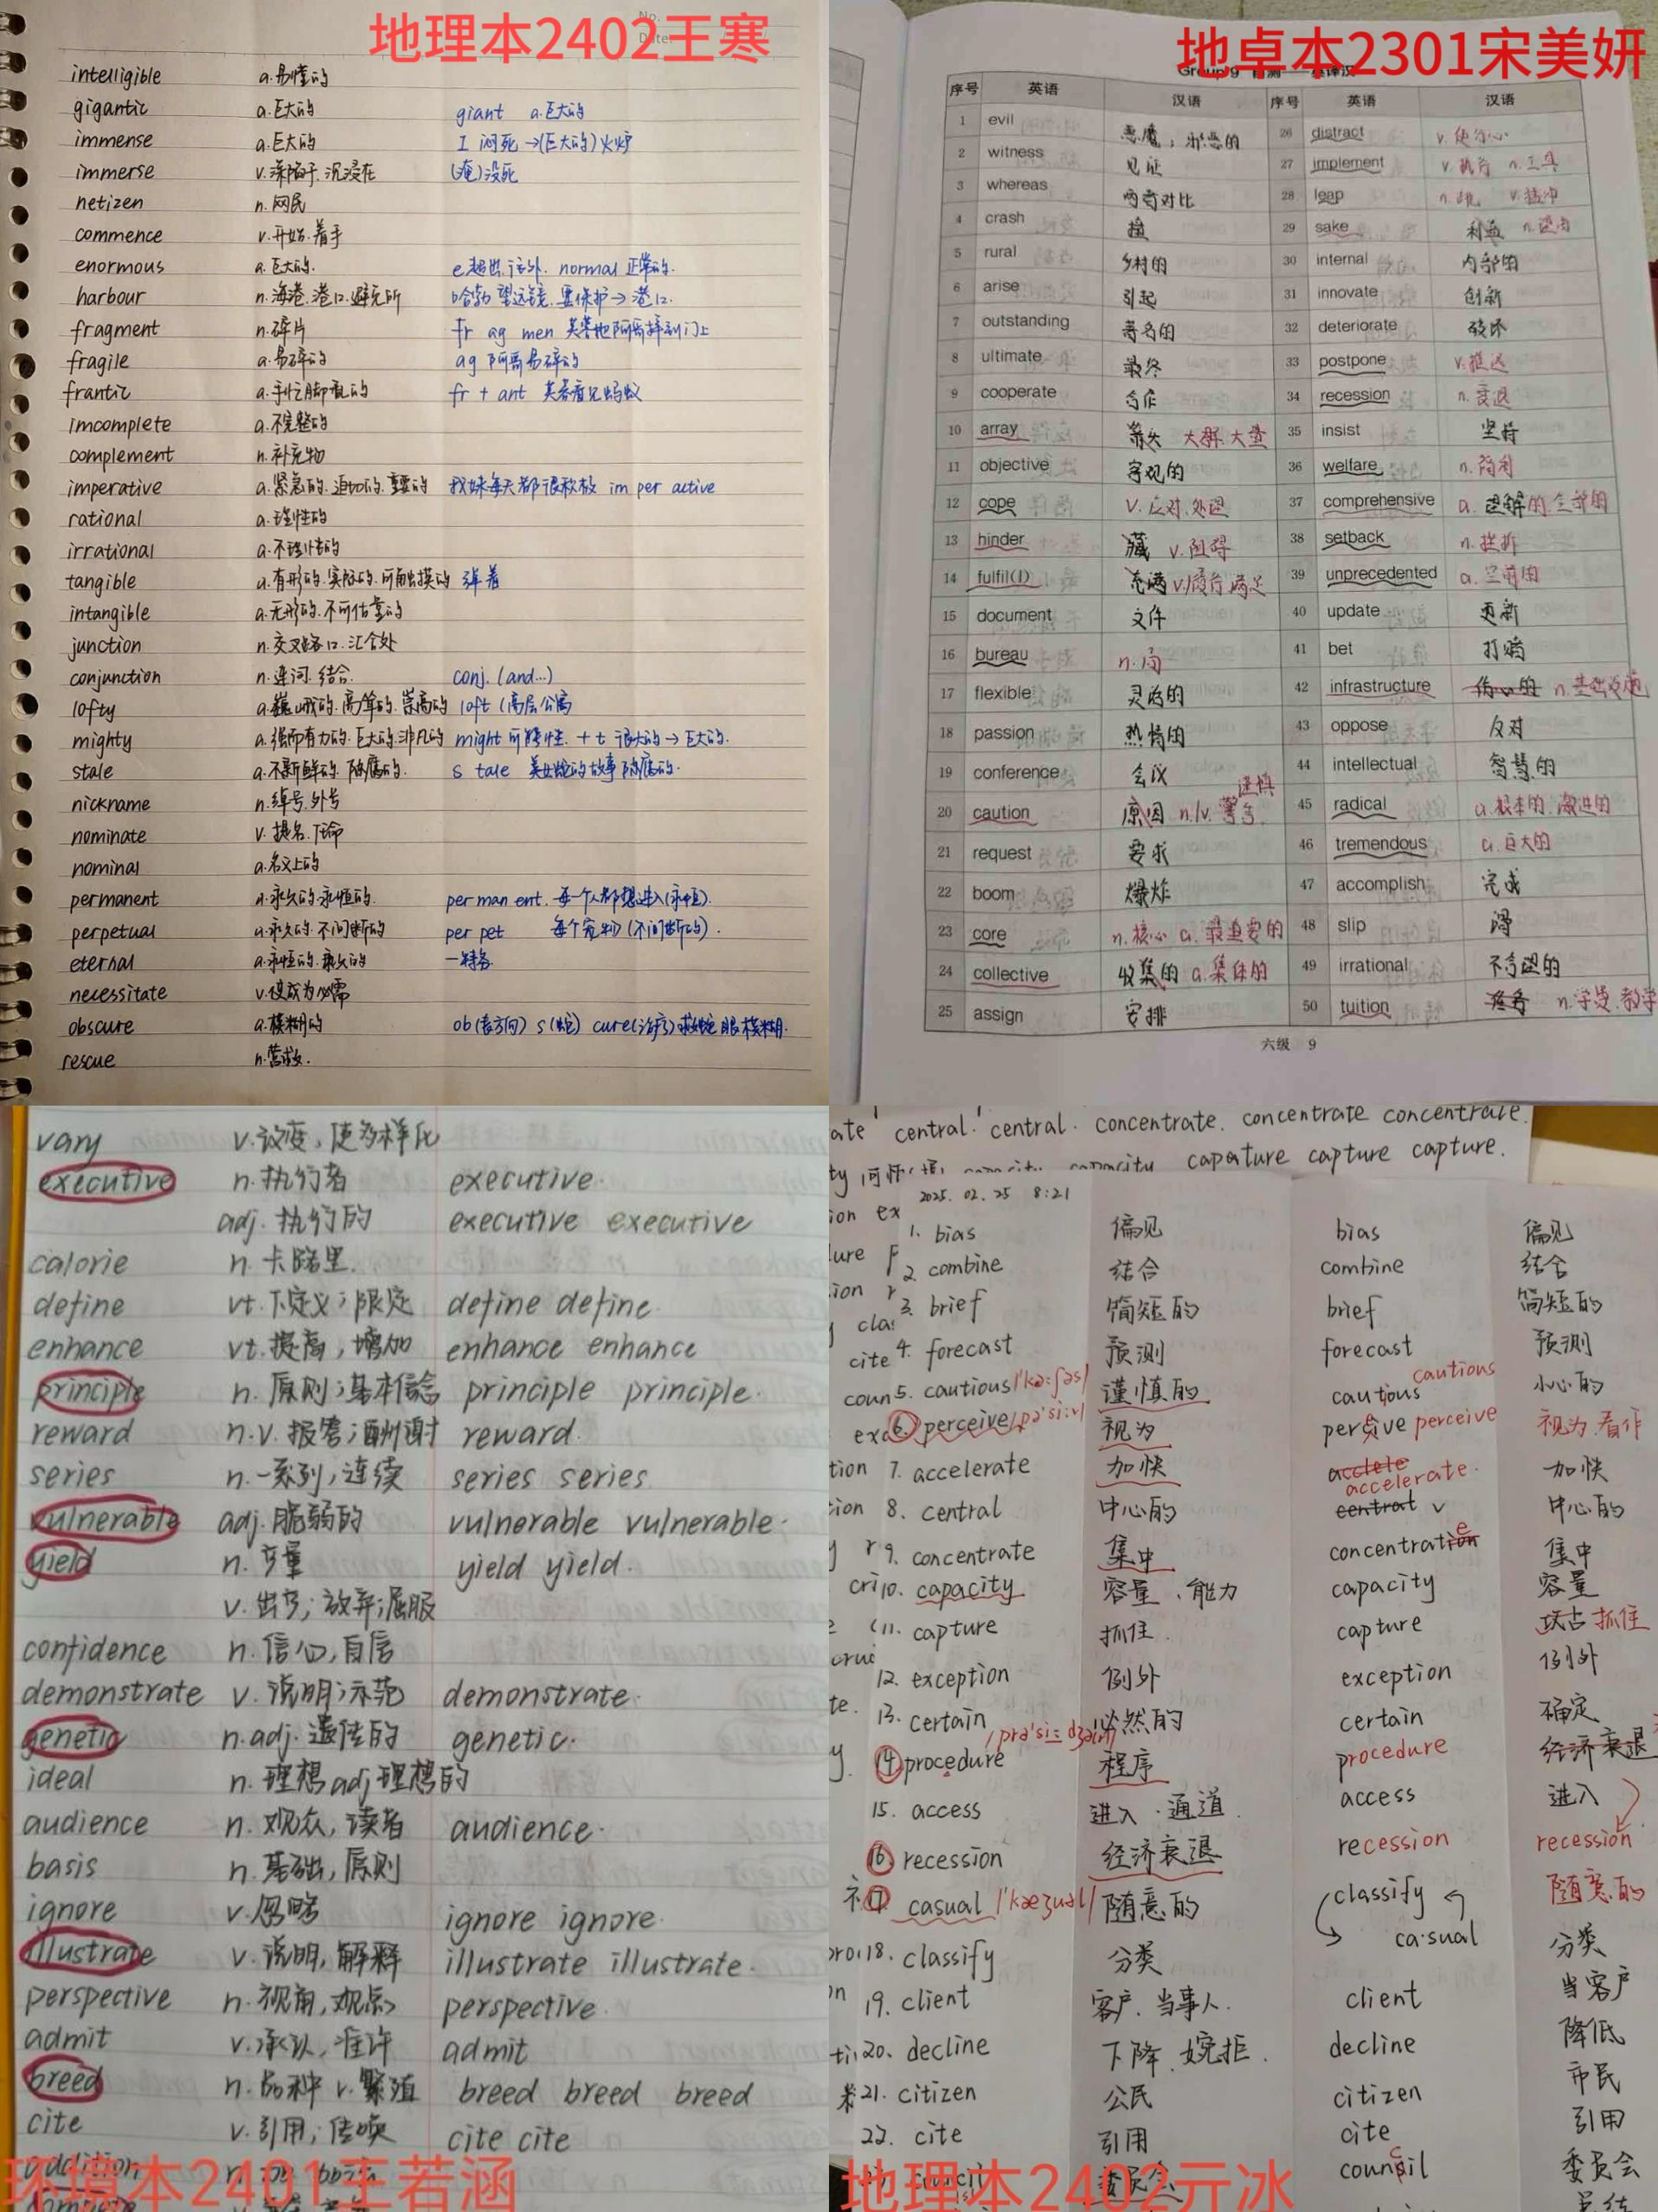 地理本2402王寒
intelligible a.易懂的
gigantic a.巨大的 giant a.巨大的
immense a.巨大的 I 闷死→(巨大的)火炉
immerse v.深陷于.沉浸在 (淹)没死
netizen n.网民
commence v.开始.着手
enormous a.巨大的. e超出.活外. normal 正常的.
harbour n.海港.港口.避难所 哈勃望远镜.要保护→港口.
fragment n.碎片 fr ag men
fragile a.易碎的 ag 阿哥易碎的
frantic a.手忙脚乱的 fr + ant 芙蓉看见蚂蚁
imcomplete a.不完整的
complement n.补充物
imperative a.紧急的.迫切的.重要的 我妹每天都很积极 im per active
rational a.理性的
irrational a.不理性的
tangible a.有形的.实际的.可触摸的 弹着
intangible a.无形的.不可估量的
junction n.交叉路口.汇合处
conjunction n.连词.结合. conj. (and...)
lofty a.巍峨的.高耸的.崇高的 loft (高层公寓
mighty a.强而有力的.巨大的.非凡的 might 可能性. +t 很大的→巨大的.
stale a.不新鲜的.陈腐的. s tale 美女蛇的故事陈腐的.
nickname n.绰号.外号
nominate v.提名.任命
nominal a.名义上的
permanent a.永久的.永恒的. per man ent. 每一个人都想进入(永恒).
perpetual a.永久的.不间断的 per pet 每个宠物(不间断的).
eternal a.永恒的.永久的
necessitate v.使成为必需
obscure a.模糊的 ob(表方向) s(蛇) cure(治疗)救蛇眼模糊.
rescue n.营救.
地卓本2301宋美妍
序号 英语 汉语 序号 英语 汉语
1 evil 恶魔；邪恶的 26 distract v.使分心
2 witness 见证 27 implement v.执行 n.工具
3 whereas 两者对比 28 leap n.跳 v.猛冲
4 crash 撞 29 sake 利益 n.理由
5 rural 乡村的 30 internal 内部的
6 arise 引起 31 innovate 创新
7 outstanding 著名的 32 deteriorate 破坏
8 ultimate 最终 33 postpone v.推迟
9 cooperate 合作 34 recession n.衰退
10 array 大群.大堆 35 insist 坚持
11 objective 客观的 36 welfare n.福利
12 cope v.应对.处理 37 comprehensive a.理解的.全部的
13 hinder 藏 v.阻碍 38 setback n.挫折
14 fulfil(l) 充满 v.履行.满足 39 unprecedented a.空前的
15 document 文件 40 update 更新
16 bureau n.局 41 bet 打赌
17 flexible 灵活的 42 infrastructure n.基础设施
18 passion 热情的 43 oppose 反对
19 conference 会议 44 intellectual 智慧的
20 caution 原因 n./v.警告 谨慎 45 radical a.根本的.激进的
21 request 要求 46 tremendous a.巨大的
22 boom 爆炸 47 accomplish 完成
23 core n.核心 a.最重要的 48 slip 滑
24 collective 收集的 a.集体的 49 irrational 不合理的
25 assign 安排 50 tuition n.学费.教学
六级 9
vary v.改变，使多样化
executive n.执行者 executive.
adj.执行的 executive executive
calorie n.卡路里.
define vt.下定义；限定 define define.
enhance vt.提高，增加 enhance enhance
principle n.原则；基本信念 principle principle.
reward n.v.报答；酬谢 reward.
series n.一系列，连续 series series.
vulnerable adj.脆弱的 vulnerable vulnerable.
yield n.产量 yield yield.
v.出产；放弃；屈服
confidence n.信心，自信
demonstrate v.说明；示范 demonstrate.
genetic n.adj.遗传的 genetic.
ideal n.理想 adj理想的
audience n.观众，读者 audience.
basis n.基础，原则
ignore v.忽略 ignore ignore.
illustrate v.说明，解释 illustrate illustrate.
perspective n.视角，观点 perspective.
admit v.承认，准许 admit
breed n.品种 v.繁殖 breed breed breed
cite v.引用；传唤 cite cite
addition
环境本2401王若涵
ate central. central. concentrate. concentrate concentrate.
capacity caparture capture capture.
2025. 02. 25 8:21
1. bias 偏见 bias 偏见
2. combine 结合 combine 结合
3. brief 简短的 brief 简短的
cite 4. forecast 预测 forecast 预测
coun 5. cautious /'kɔ:ʃəs/ 谨慎的 cautious cautious 小心的
6. perceive /pə'si:v/ 视为 perceive perceive 视为.看作
tion 7. accelerate 加快 acclete accelerate. 加快
tion 8. central 中心的 central ✓ 中心的
9. concentrate 集中 concentration e 集中
10. capacity 容量、能力 capacity 容量
11. capture 抓住. capture 抓住
12. exception 例外 exception 例外
13. certain 必然的 certain 确定
14 procedure /prə'si:dʒə(r)/ 程序 procedure 经济衰退
15. access 进入.通道. access 进入
16 recession 经济衰退 recession recession.
17 casual /'kæʒuəl/ 随意的 classify 随意的
18. classify 分类 casual 分类
19. client 客户.当事人. client 当客户
20. decline 下降.婉拒. decline 降低
21. citizen 公民 citizen 市民
22. cite 引用 cite 引用
council 委员会 council 委员会
地理本2402亓冰